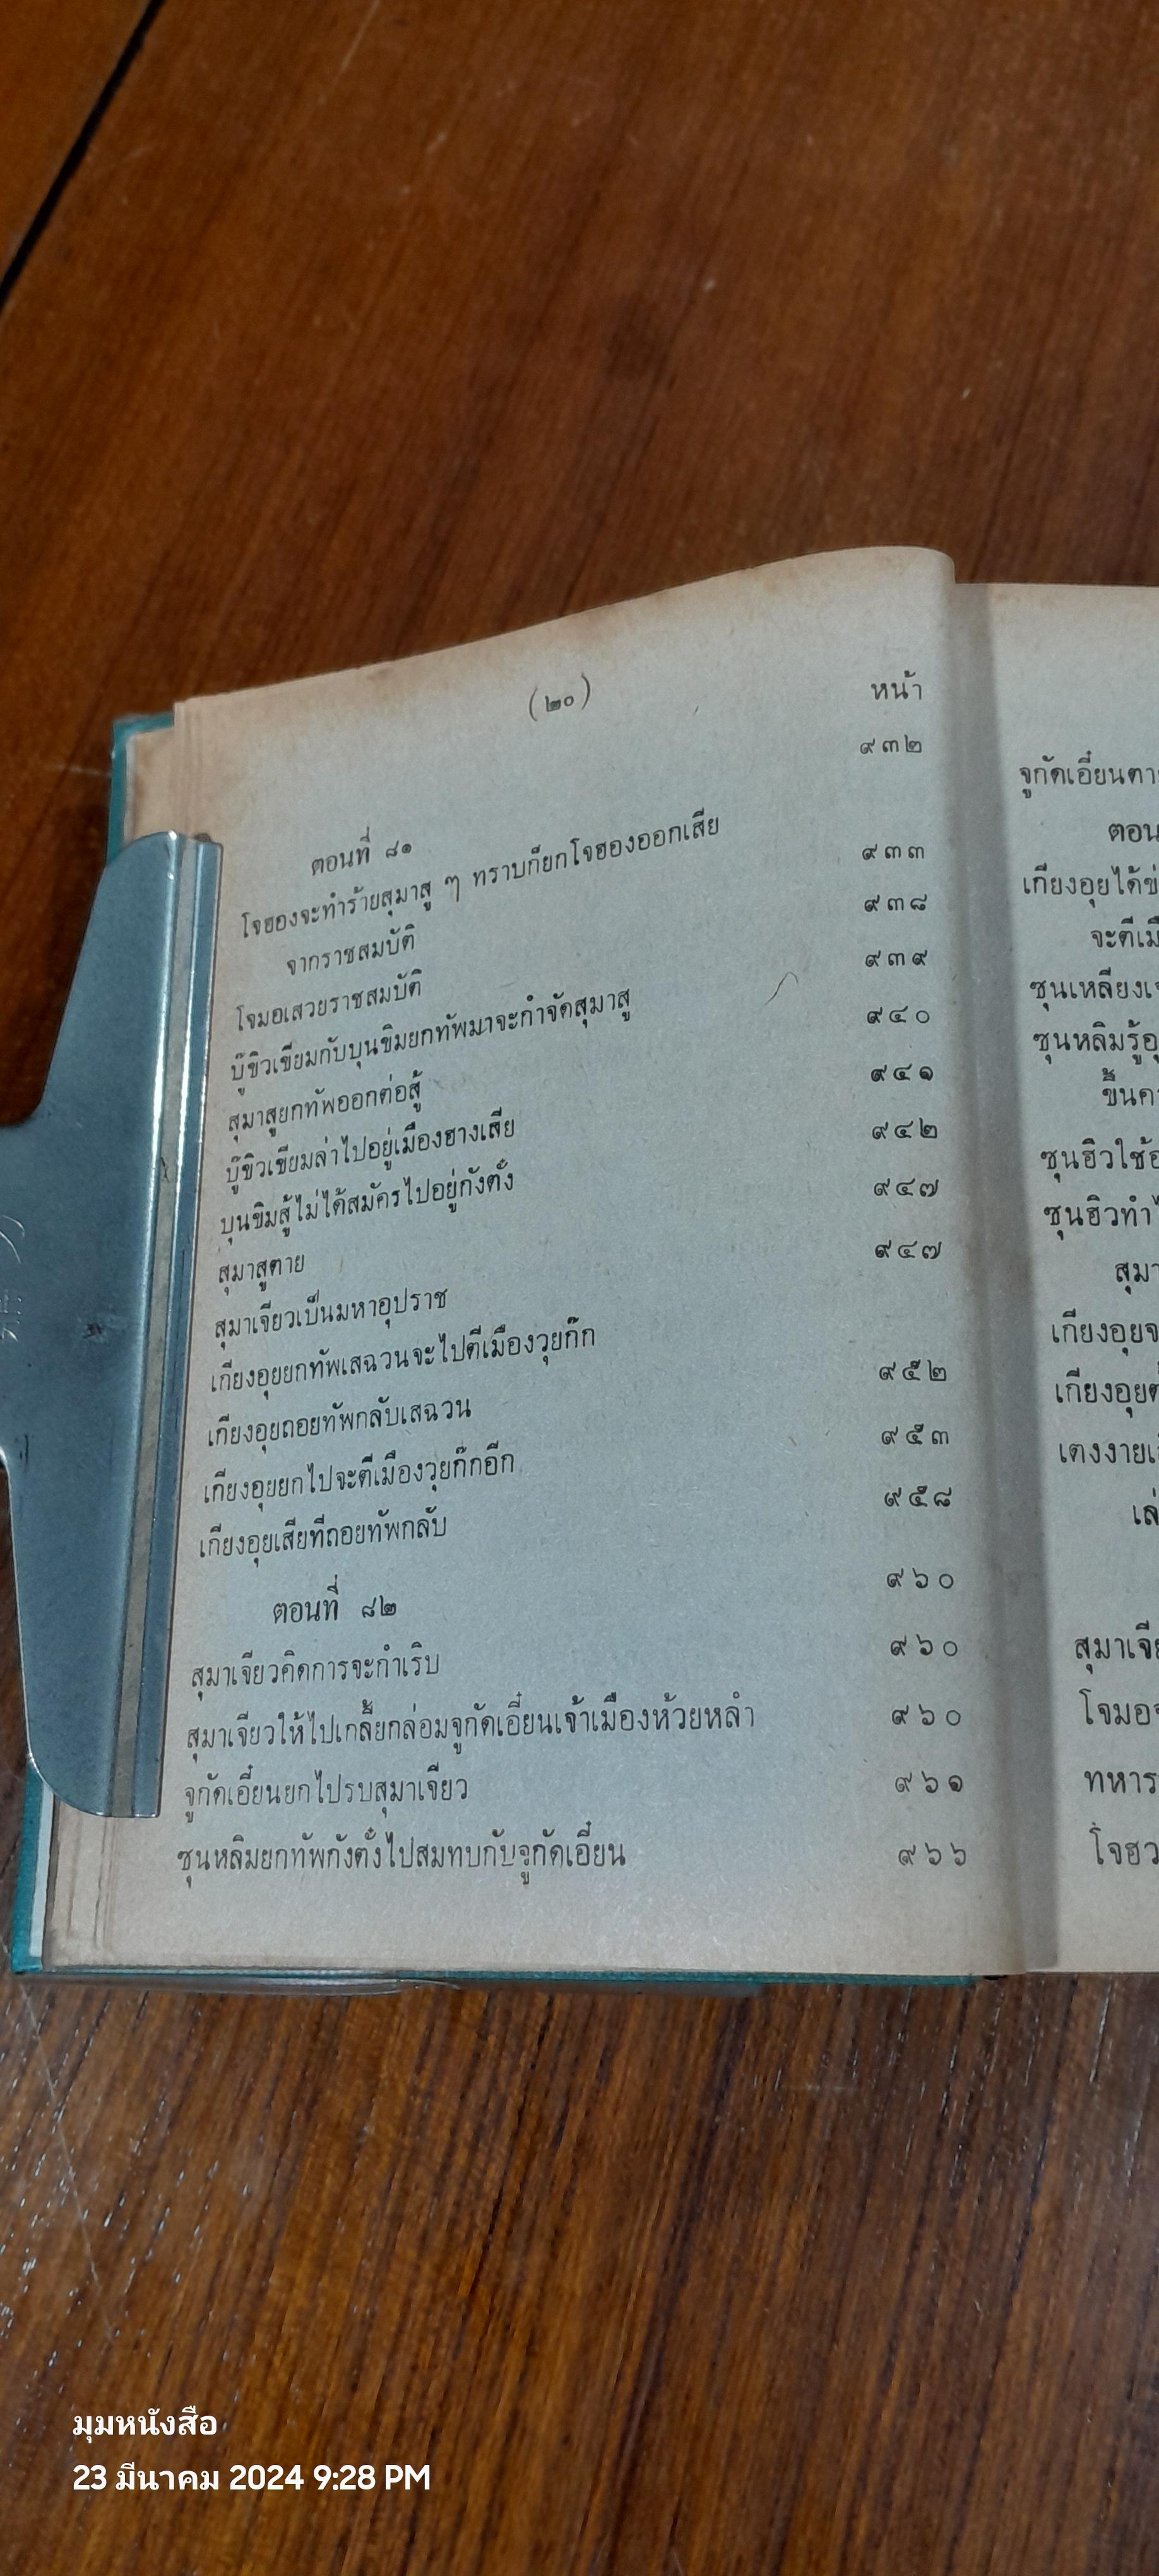 (๒๐)
หน้า
ตอนที่ ๘๑
โจฮองจะทำร้ายสุมาสู ๆ ทราบก็ยกโจฮองออกเสีย
จากราชสมบัติ
โจมอเสวยราชสมบัติ
บู๊ขิวเขียมกับบุนขิมยกทัพมาจะกำจัดสุมาสู
สุมาสูยกทัพออกต่อสู้
บู๊ขิวเขียมล่าไปอยู่เมืองฮางเสีย
บุนขิมสู้ไม่ได้สมัครไปอยู่กังตั๋ง
สุมาสูตาย
สุมาเจียวเป็นมหาอุปราช
เกียงอุยยกทัพเสฉวนจะไปตีเมืองวุยก๊ก
เกียงอุยถอยทัพกลับเสฉวน
เกียงอุยยกไปจะตีเมืองวุยก๊กอีก
เกียงอุยเสียทีถอยทัพกลับ
ตอนที่ ๘๒
สุมาเจียวคิดการจะกำเริบ
สุมาเจียวให้ไปเกลี้ยกล่อมจูกัดเอี๋ยนเจ้าเมืองห้วยหลำ
จูกัดเอี๋ยนยกไปรบสุมาเจียว
ซุนหลิมยกทัพกังตั๋งไปสมทบกับจูกัดเอี๋ยน
๙๓๒
๙๓๓
๙๓๘
๙๓๙
๙๔๐
๙๔๑
๙๔๒
๙๔๗
๙๔๗
๙๕๒
๙๕๓
๙๕๘
๙๖๐
๙๖๐
๙๖๐
๙๖๑
๙๖๖
จูกัดเอี๋ยนตา
ตอน
เกียงอุยได้ข
จะตีเมื
ซุนเหลียงเจ
ซุนหลิมรู้
ขึ้นค
ซุนฮิวใช้
ซุนฮิวทำ
สุมา
เกียงอุยจ
เกียงอุย
เตงงาย
เล่
สุมาเจี
โจมอ
ทหาร
โจฮว
มุมหนังสือ
23 มีนาคม 2024 9:28 PM